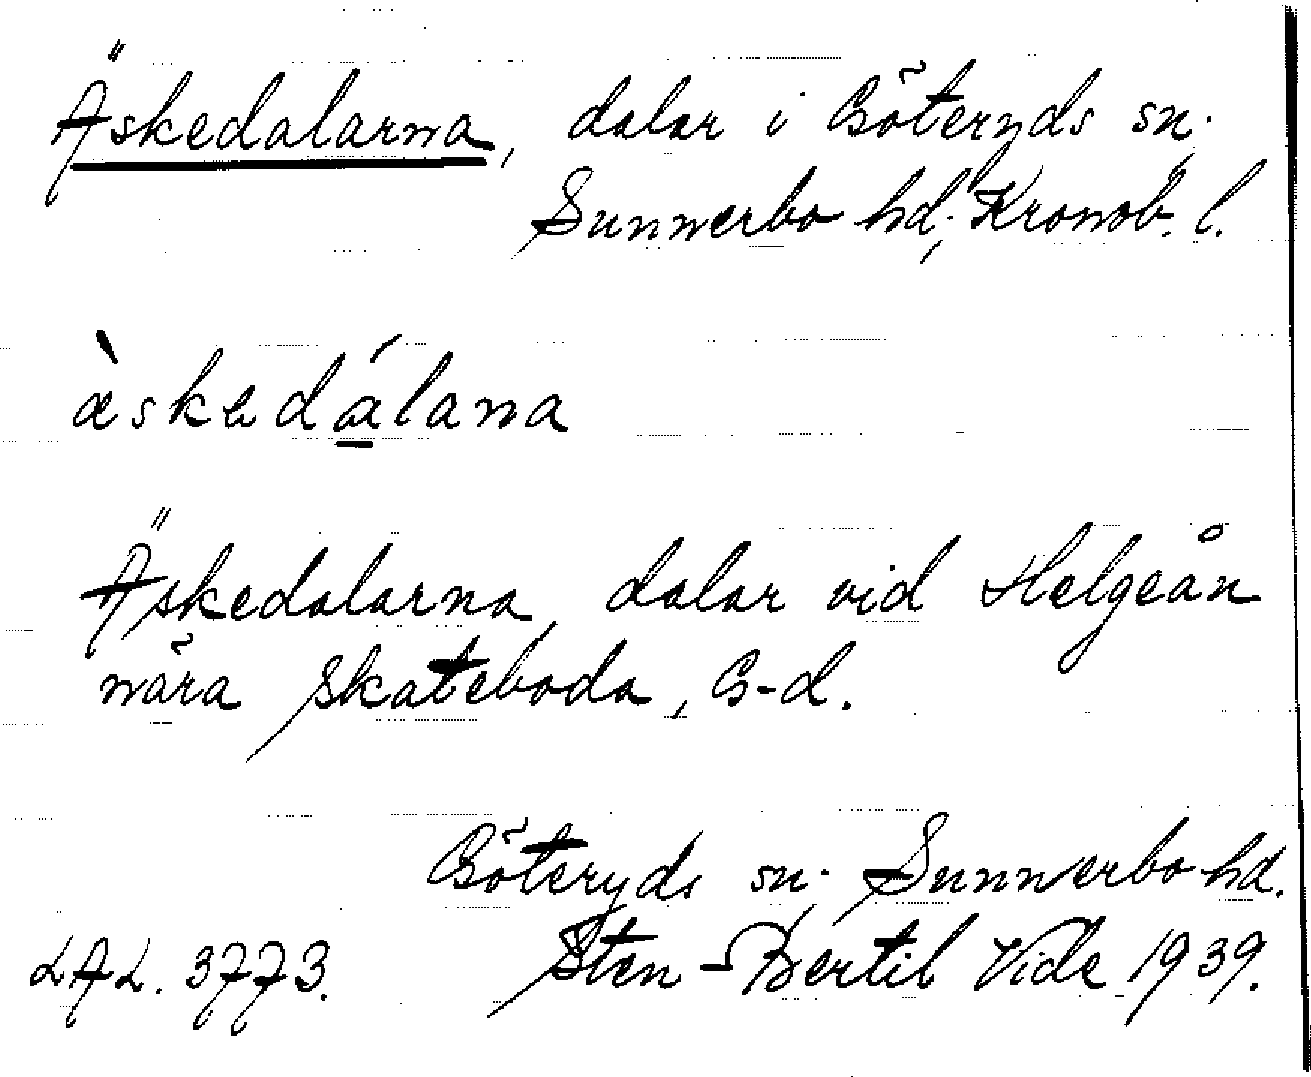 Äskedalarna, dalar i Göteryds sn.
Sunnerbo hd, Kronob. l.
æ̀skedálana
Äskedalarna, dalar vid Helgeån
nära Skateboda, G-d.
Göteryds sn. Sunnerbo hd.
LAL. 3773. Sten-Bertil Vide 1939.